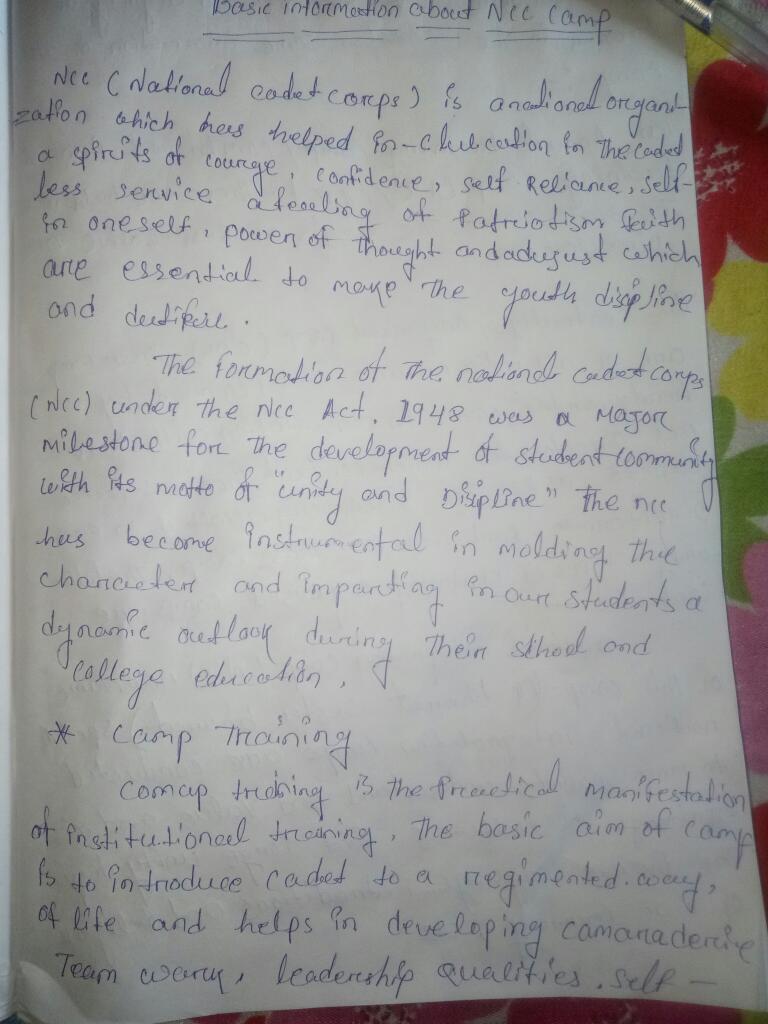 Basic information about Ncc Camp
Ncc (National cadet corps) is a national organi-
zation which has helped in - in the cadet
a spirits of courge, confidence, self Reliance, self-
less service a feeling of Patriotism faith
in oneself, power of thought and which
are essential to make the youth discipline
and
The formation of the national cadet corps
(Ncc) under the Ncc Act, 1948 was a Major
milestone for the development of student community
with its motto of "unity and Disipline" The ncc
has become instrumental in molding the
character and imparting in our students a
dynamic outlook during their school and
College education.
* Camp Training
Comap training is the Practical manifestation
of institutional training, The basic aim of camp
is to introduce cadet to a regimented way,
of life and helps in developing
Team work, leadership qualities, self -